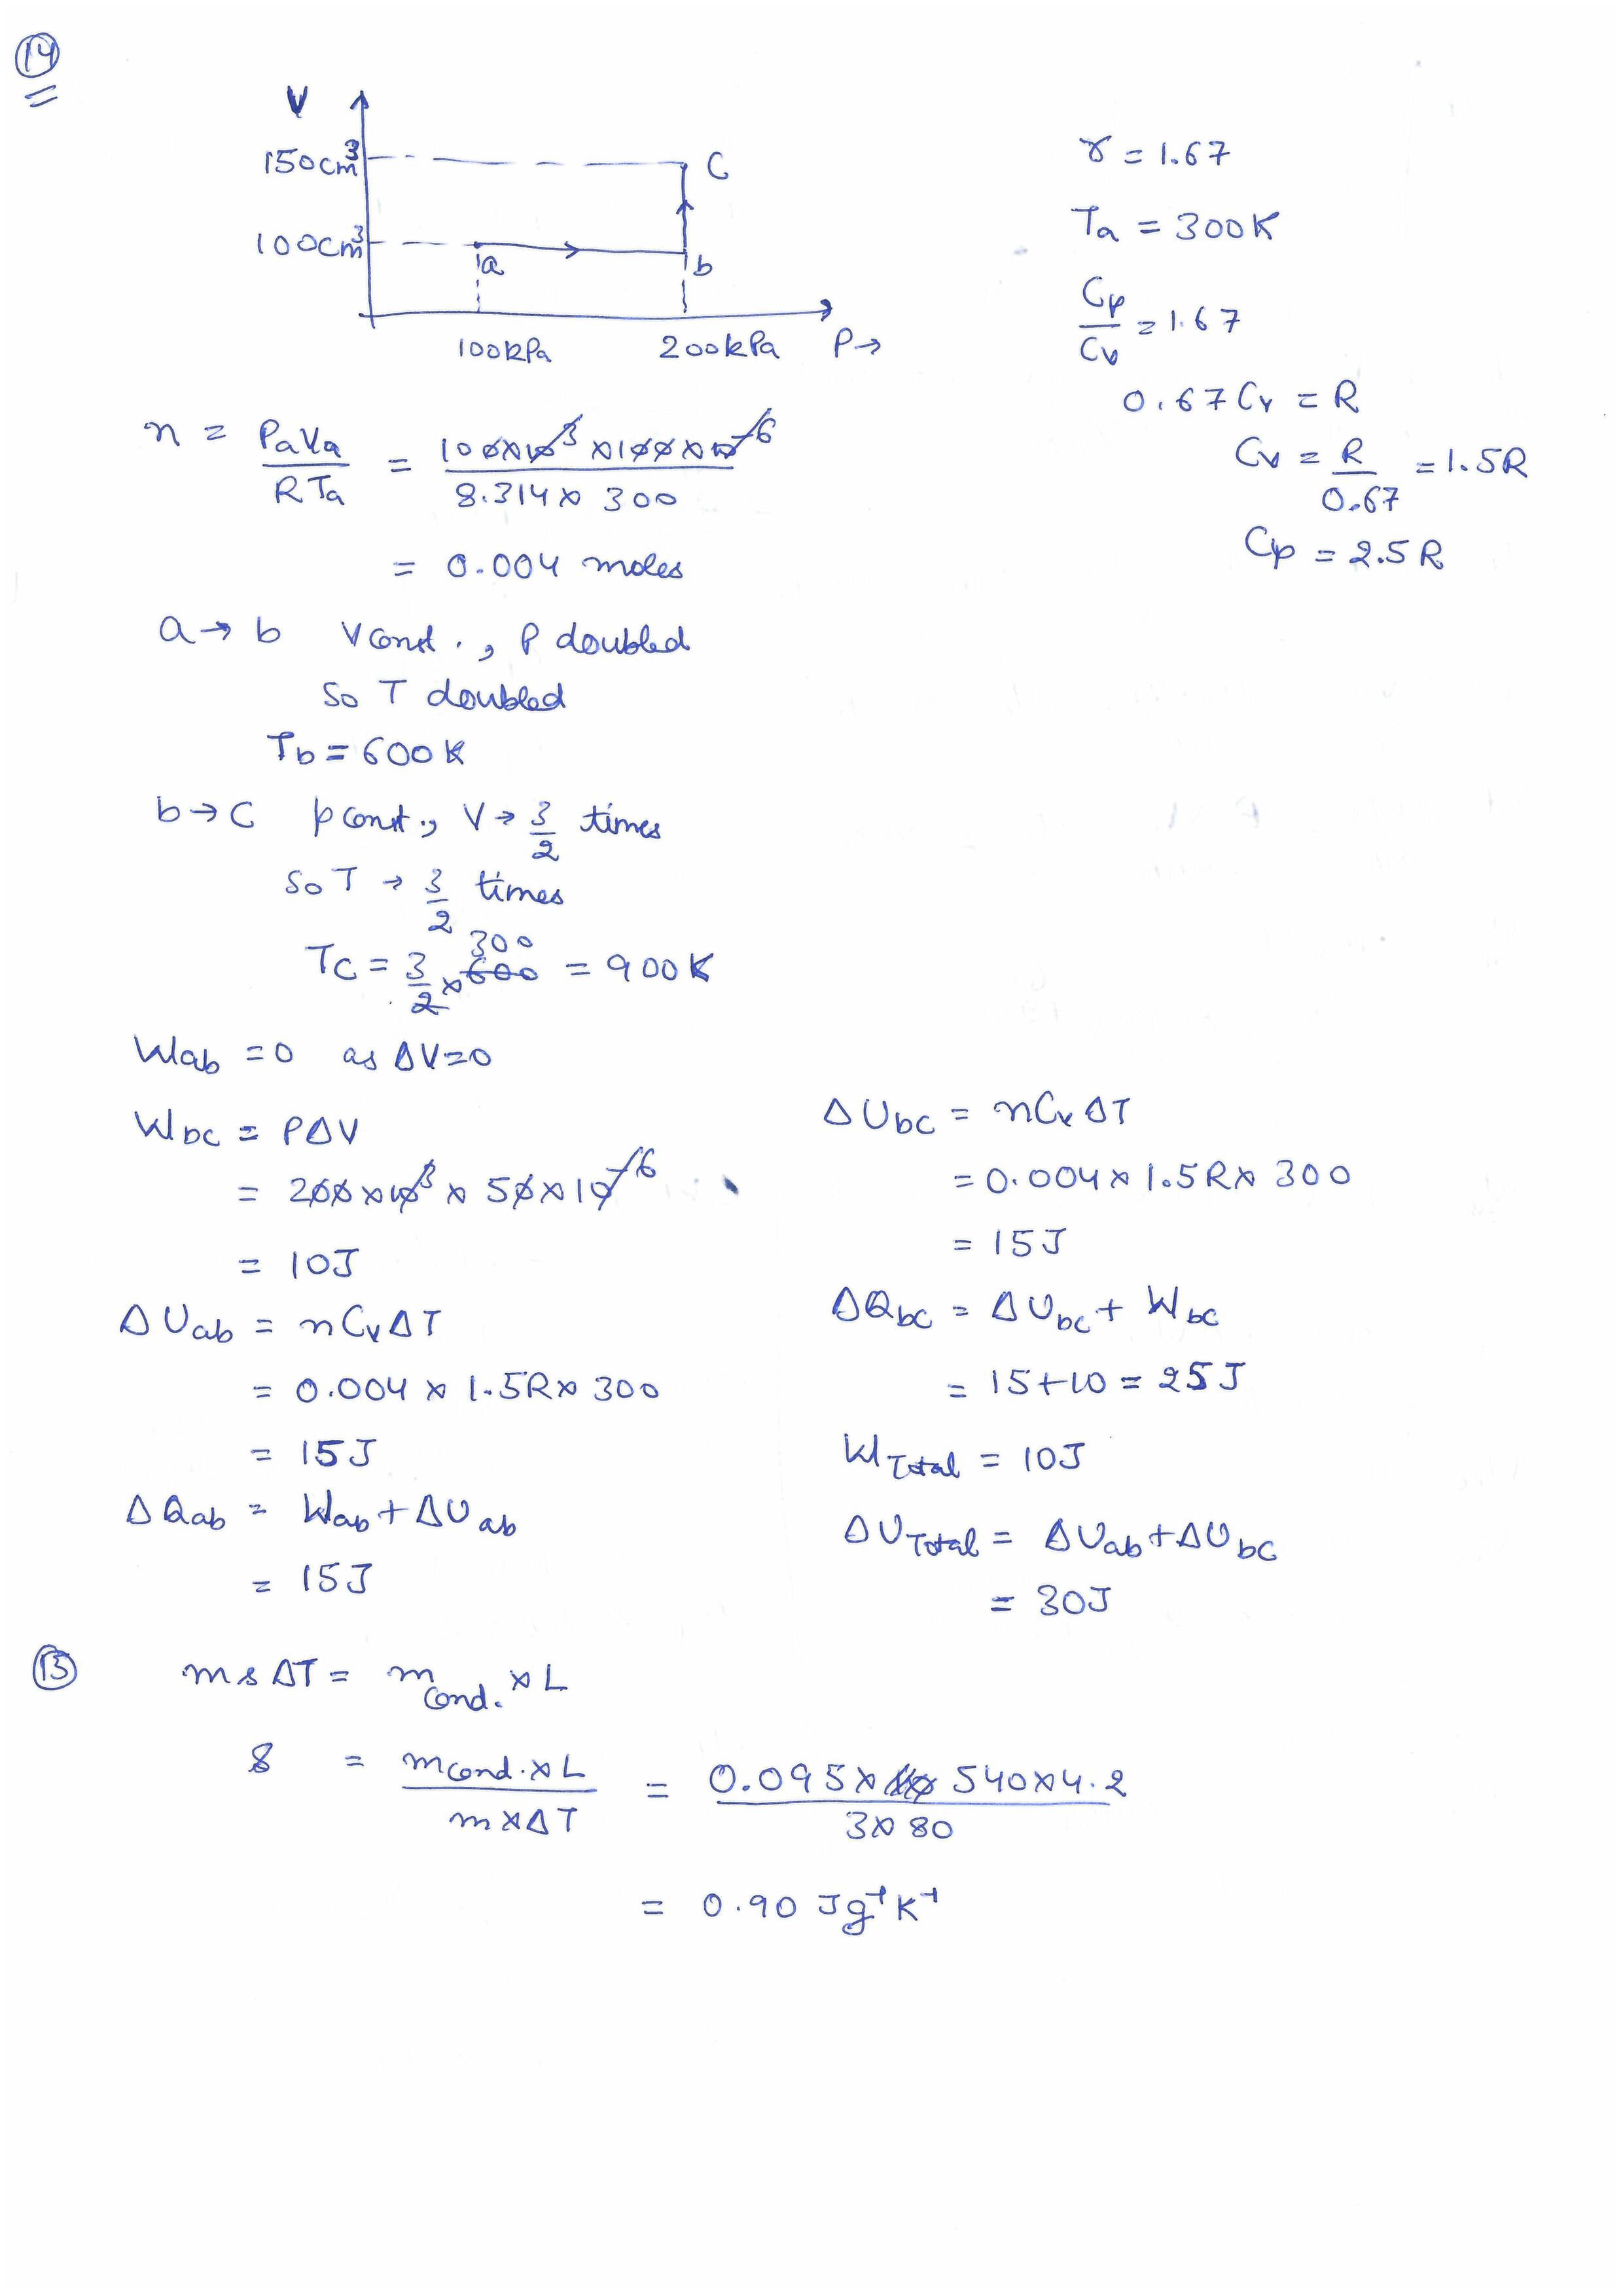 14
V
150cm³
C
100cm³
a
b
100kPa
200kPa
P→
γ = 1.67
Ta = 300K
Cp/Cv = 1.67
0.67 Cv = R
Cv = R/0.67 = 1.5R
Cp = 2.5R
n = PaVa/RTa = 100×10³ × 100×10⁻⁶/8.314 × 300
= 0.004 moles
a → b V const., P doubled
So T doubled
Tb = 600K
b → C p const., V → 3/2 times
So T → 3/2 times
300
TC = 3/2 × 600 = 900K
Wab = 0 as ΔV=0
Wbc = PΔV
= 200×10³ × 50×10⁻⁶
= 10J
ΔUab = nCvΔT
= 0.004 × 1.5R × 300
= 15J
ΔQab = Wab + ΔUab
= 15J
ΔUbc = nCvΔT
= 0.004 × 1.5R × 300
= 15J
ΔQbc = ΔUbc + Wbc
= 15+10 = 25J
WTotal = 10J
ΔUTotal = ΔUab + ΔUbc
= 30J
13
msΔT = mCond. × L
s = mCond. × L/m×ΔT = 0.095 × 540×4.2/3×80
= 0.90 Jg⁻¹K⁻¹